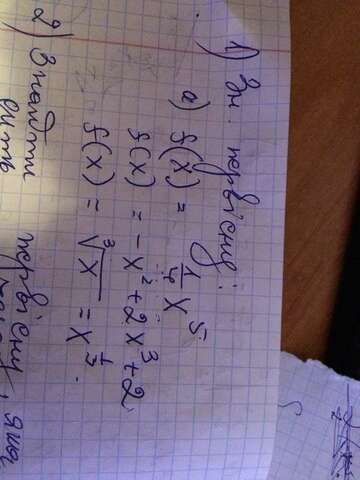 1) Зн. первісну:
а) f(x) = 1/4 x⁵
f(x) = -x² + 2x³ + 2
f(x) = ³√x = x^1/3.
2) Знайти первісну, яка